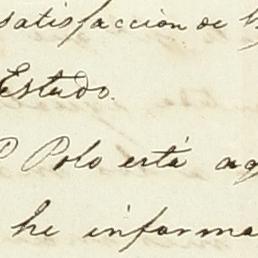 satisfaccion de
Estado.
P Polo está
he informa